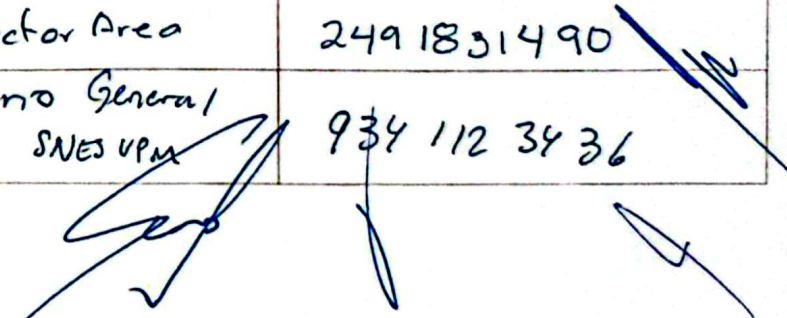 ctor Area 249 1831490
no General
SNEJ UPM 934 112 34 36